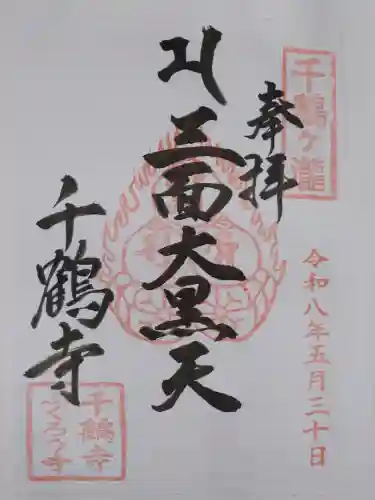 千鶴ヶ瀧
奉拝
令和八年五月三十日
三面大黒天
千鶴寺
千鶴寺